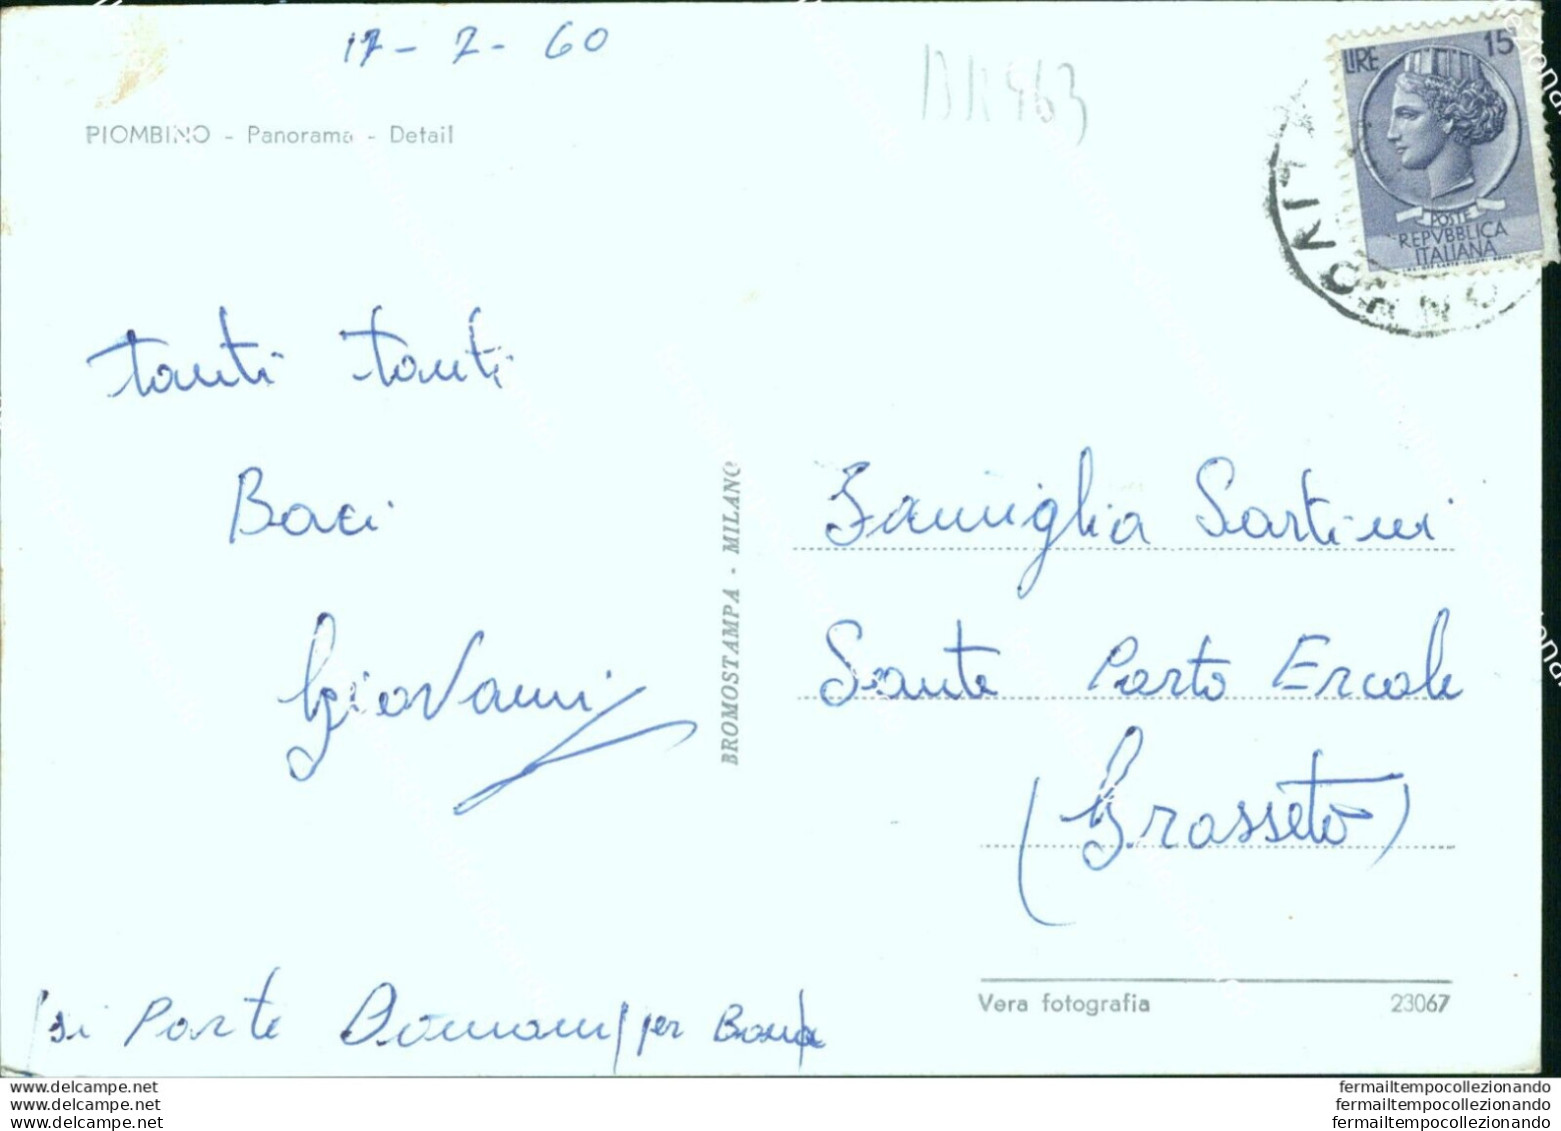 17-2-60
BR463
PIOMBINO - Panorama - Detail
LIRE 15
POSTE
REPVBBLICA
ITALIANA
LIVORNO
Tanti Tanti
Baci
Giovanni
BROMOSTAMPA - MILANO
Famiglia Sartini
Sante Porto Ercole
(Grosseto)
Vera fotografia 23067
si Parte Domani per
www.delcampe.net
www.delcampe.net
www.delcampe.net
fermailtempocollezionando
fermailtempocollezionando
fermailtempocollezionando